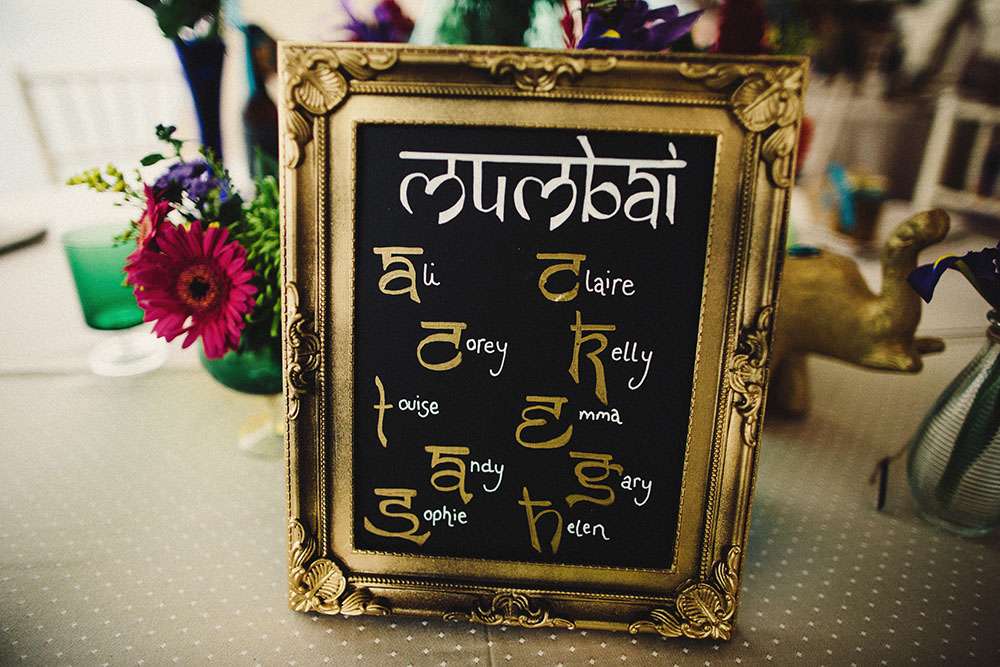 mumbai
Ali Claire
Corey Kelly
Louise Emma
Andy Gary
Sophie Helen